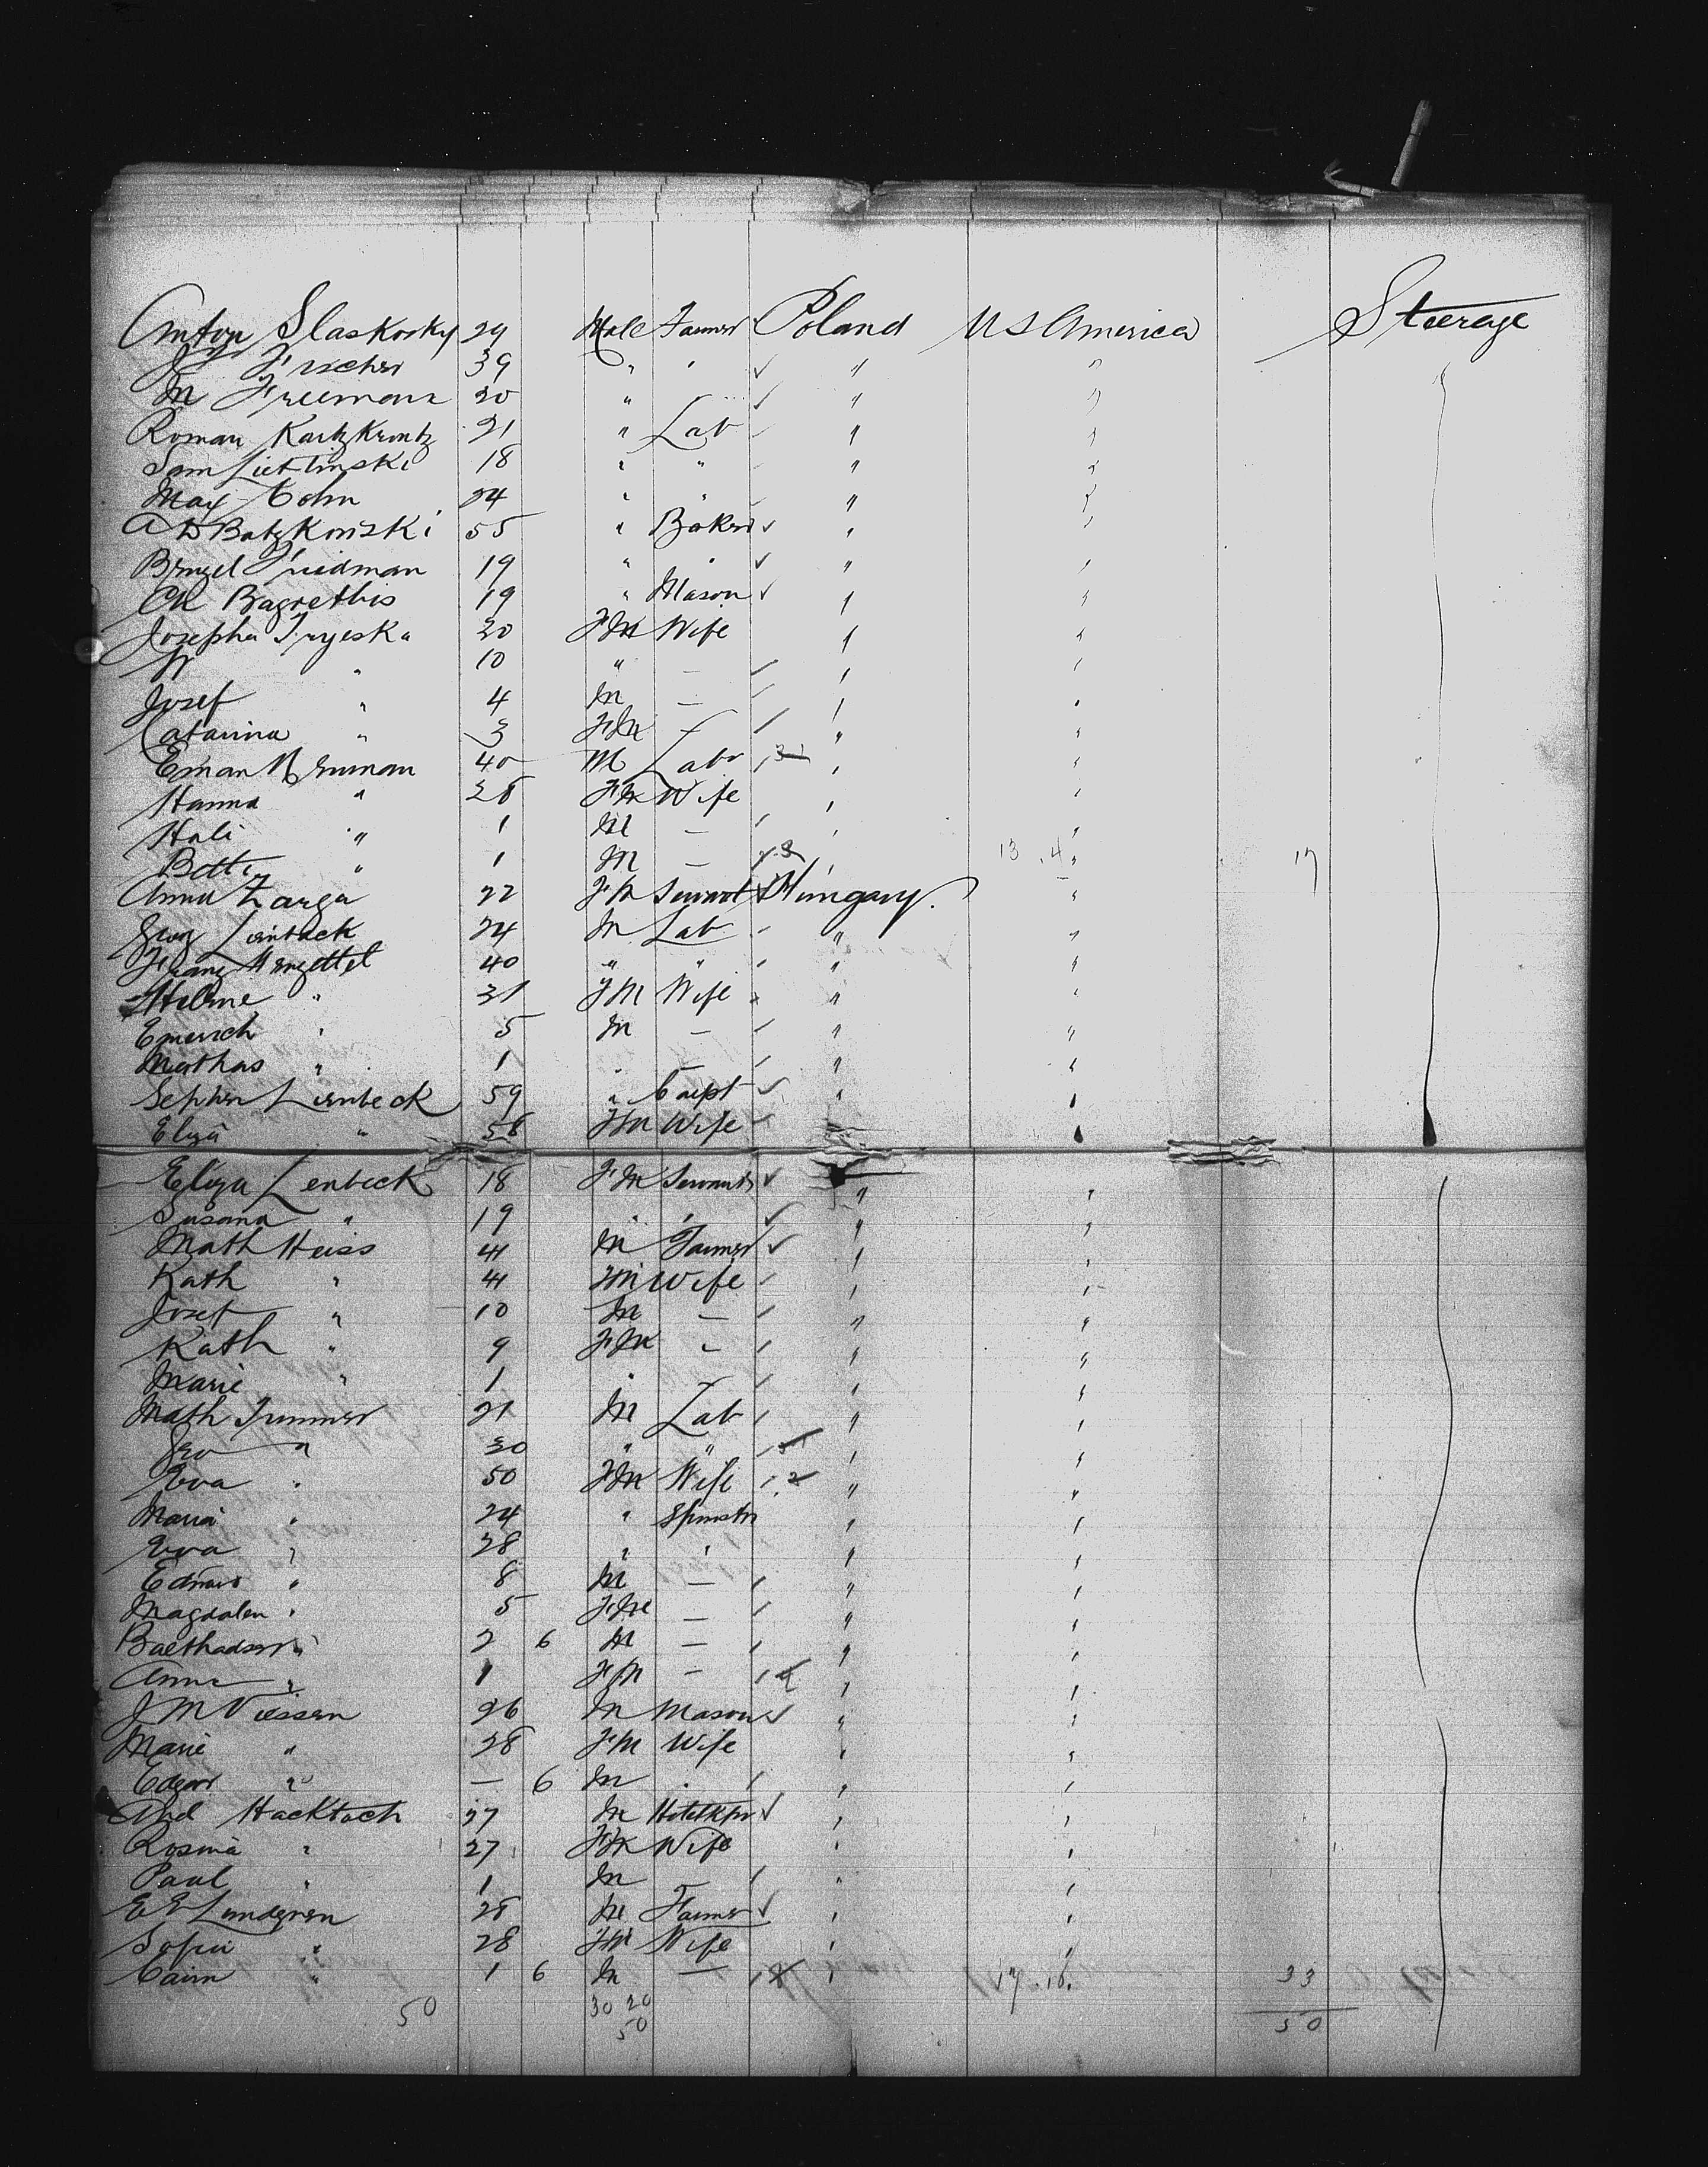 Anton Slaskosky 29 Male Farmer Poland US America Steerage
Fischer 39 " " " "
M Freeman 20 " " "
Roman 21 " Lab " "
Sam 18 " " " "
Max Cohn 24 " " " "
A D Batzkowski 55 " Baker " "
Friedman 19 " " " "
Ch Bagrethis 19 " Mason " "
Josepha Tryeska 30 FM Wife " "
W " 10 " — " "
Josef " 4 M — " "
Catarina " 3 FM — " "
40 M Labr " "
Hanna " 28 FM Wife " "
Hali " 1 M — " "
" 1 M — " 13 . 4 " 17
Anna Zarga 22 FM Servant Hungary "
Lernback 24 M Lab " "
Franz 40 " " " "
Helene " 31 FM Wife " "
Emerich " 5 M — " "
Mathas " 1 " — " "
Lernbeck 59 " Carpt " "
Eliza " 58 FM Wife
Eliza Lenbeck 18 FM Servant " "
Susana " 19 " " " "
Math Heiss 41 M Farmer " "
Kath " 41 FM Wife " "
Josef " 10 M — " "
Kath " 9 FM — " "
Marie " 1 " — " "
Math Trimmer 21 M Lab " "
Geo " 30 " " " "
Eva " 50 FM Wife " "
Maria " 24 " Spinstr " "
Eva " 28 " " " "
Edward " 8 M — " "
Magdalen " 5 FM — " "
" 2 6 M — " "
Anna " 1 FM — " "
J M Viessen 26 M Mason " "
Marie " 28 FM Wife " "
Edgar " — 6 M " "
Hacktoch 27 M Hotelkpr " "
Rosina " 27 FM Wife " "
Paul " 1 M — " "
E E Lundgren 28 M Farmer " "
Sofia " 28 FM Wife " "
" 1 6 M — " 17 . 16. 33
50 30 20 50
50